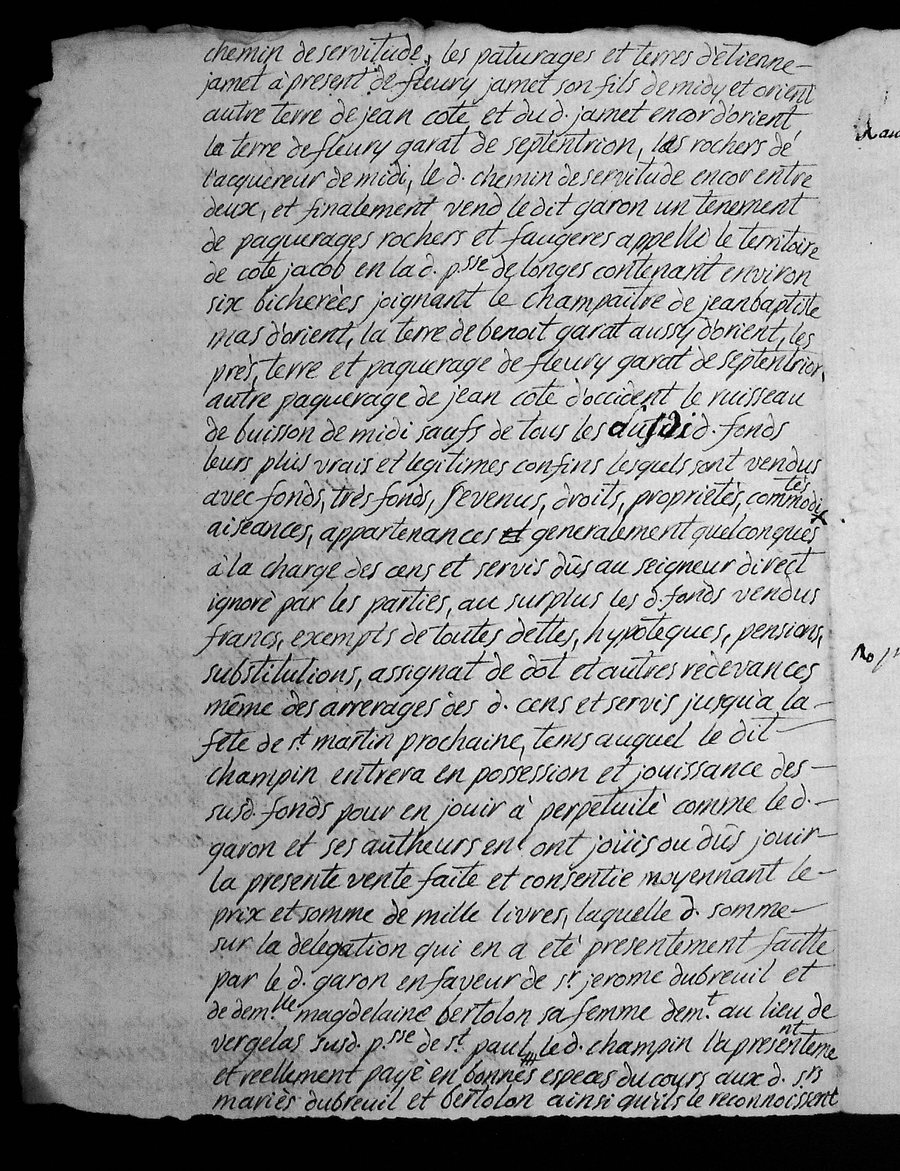 chemin de servitude, les paturages et terres d'etienne
jamet à present de fleury jamet son fils de midy et orient
autre terre de jean cote et du d. jamet encor d'orient
la terre de fleury garat de septentrion, les rochers de
l'acquereur de midi, le d. chemin de servitude encor entre
deux, et finalement vend ledit garon un tenement
de paquerages rochers et faugeres appellé le territoire
de cote jacob en la d. psse de longes contenant environ
six bicherées joignant le champaitre de jean baptiste
mas d'orient, la terre de benoit garat aussy d'orient, les
près, terre et paquerage de fleury garat de septentrion,
autre paquerage de jean cote d'occident le ruisseau
de buisson de midi saufs de tous les d. fonds
leurs plus vrais et legitimes confins lesquels sont vendus
avec fonds, très fonds, revenus, droits, propriétés, commodités
aiseances, appartenances et generalement quelconques
à la charge des cens et servis dûs au seigneur direct
ignoré par les parties, au surplus les d. fonds vendus
francs, exempts de toutes dettes, hypoteques, pensions,
substitutions, assignat de dot et autres recevances
même des arrerages des d. cens et servis jusqu'a la
fête de st martin prochaine, tems auquel le dit
champin entrera en possession et jouissance des
susd. fonds pour en jouir à perpetuité comme le d.
garon et ses autheurs en ont joüis ou dûs jouir
la presente vente faite et consentie moyennant le
prix et somme de mille livres, laquelle d. somme
sur la delegation qui en a eté presentement faitte
par le d. garon en faveur de sr jerome dubreuil et
de demlle magdelaine bertolon sa femme demt. au lieu de
vergelas susd. psse de st. paul, le d. champin l'a presentement
et reellement payé en bonnes especes du cours aux d. srs
mariés dubreuil et bertolon ainsi qu'ils le reconnoissent